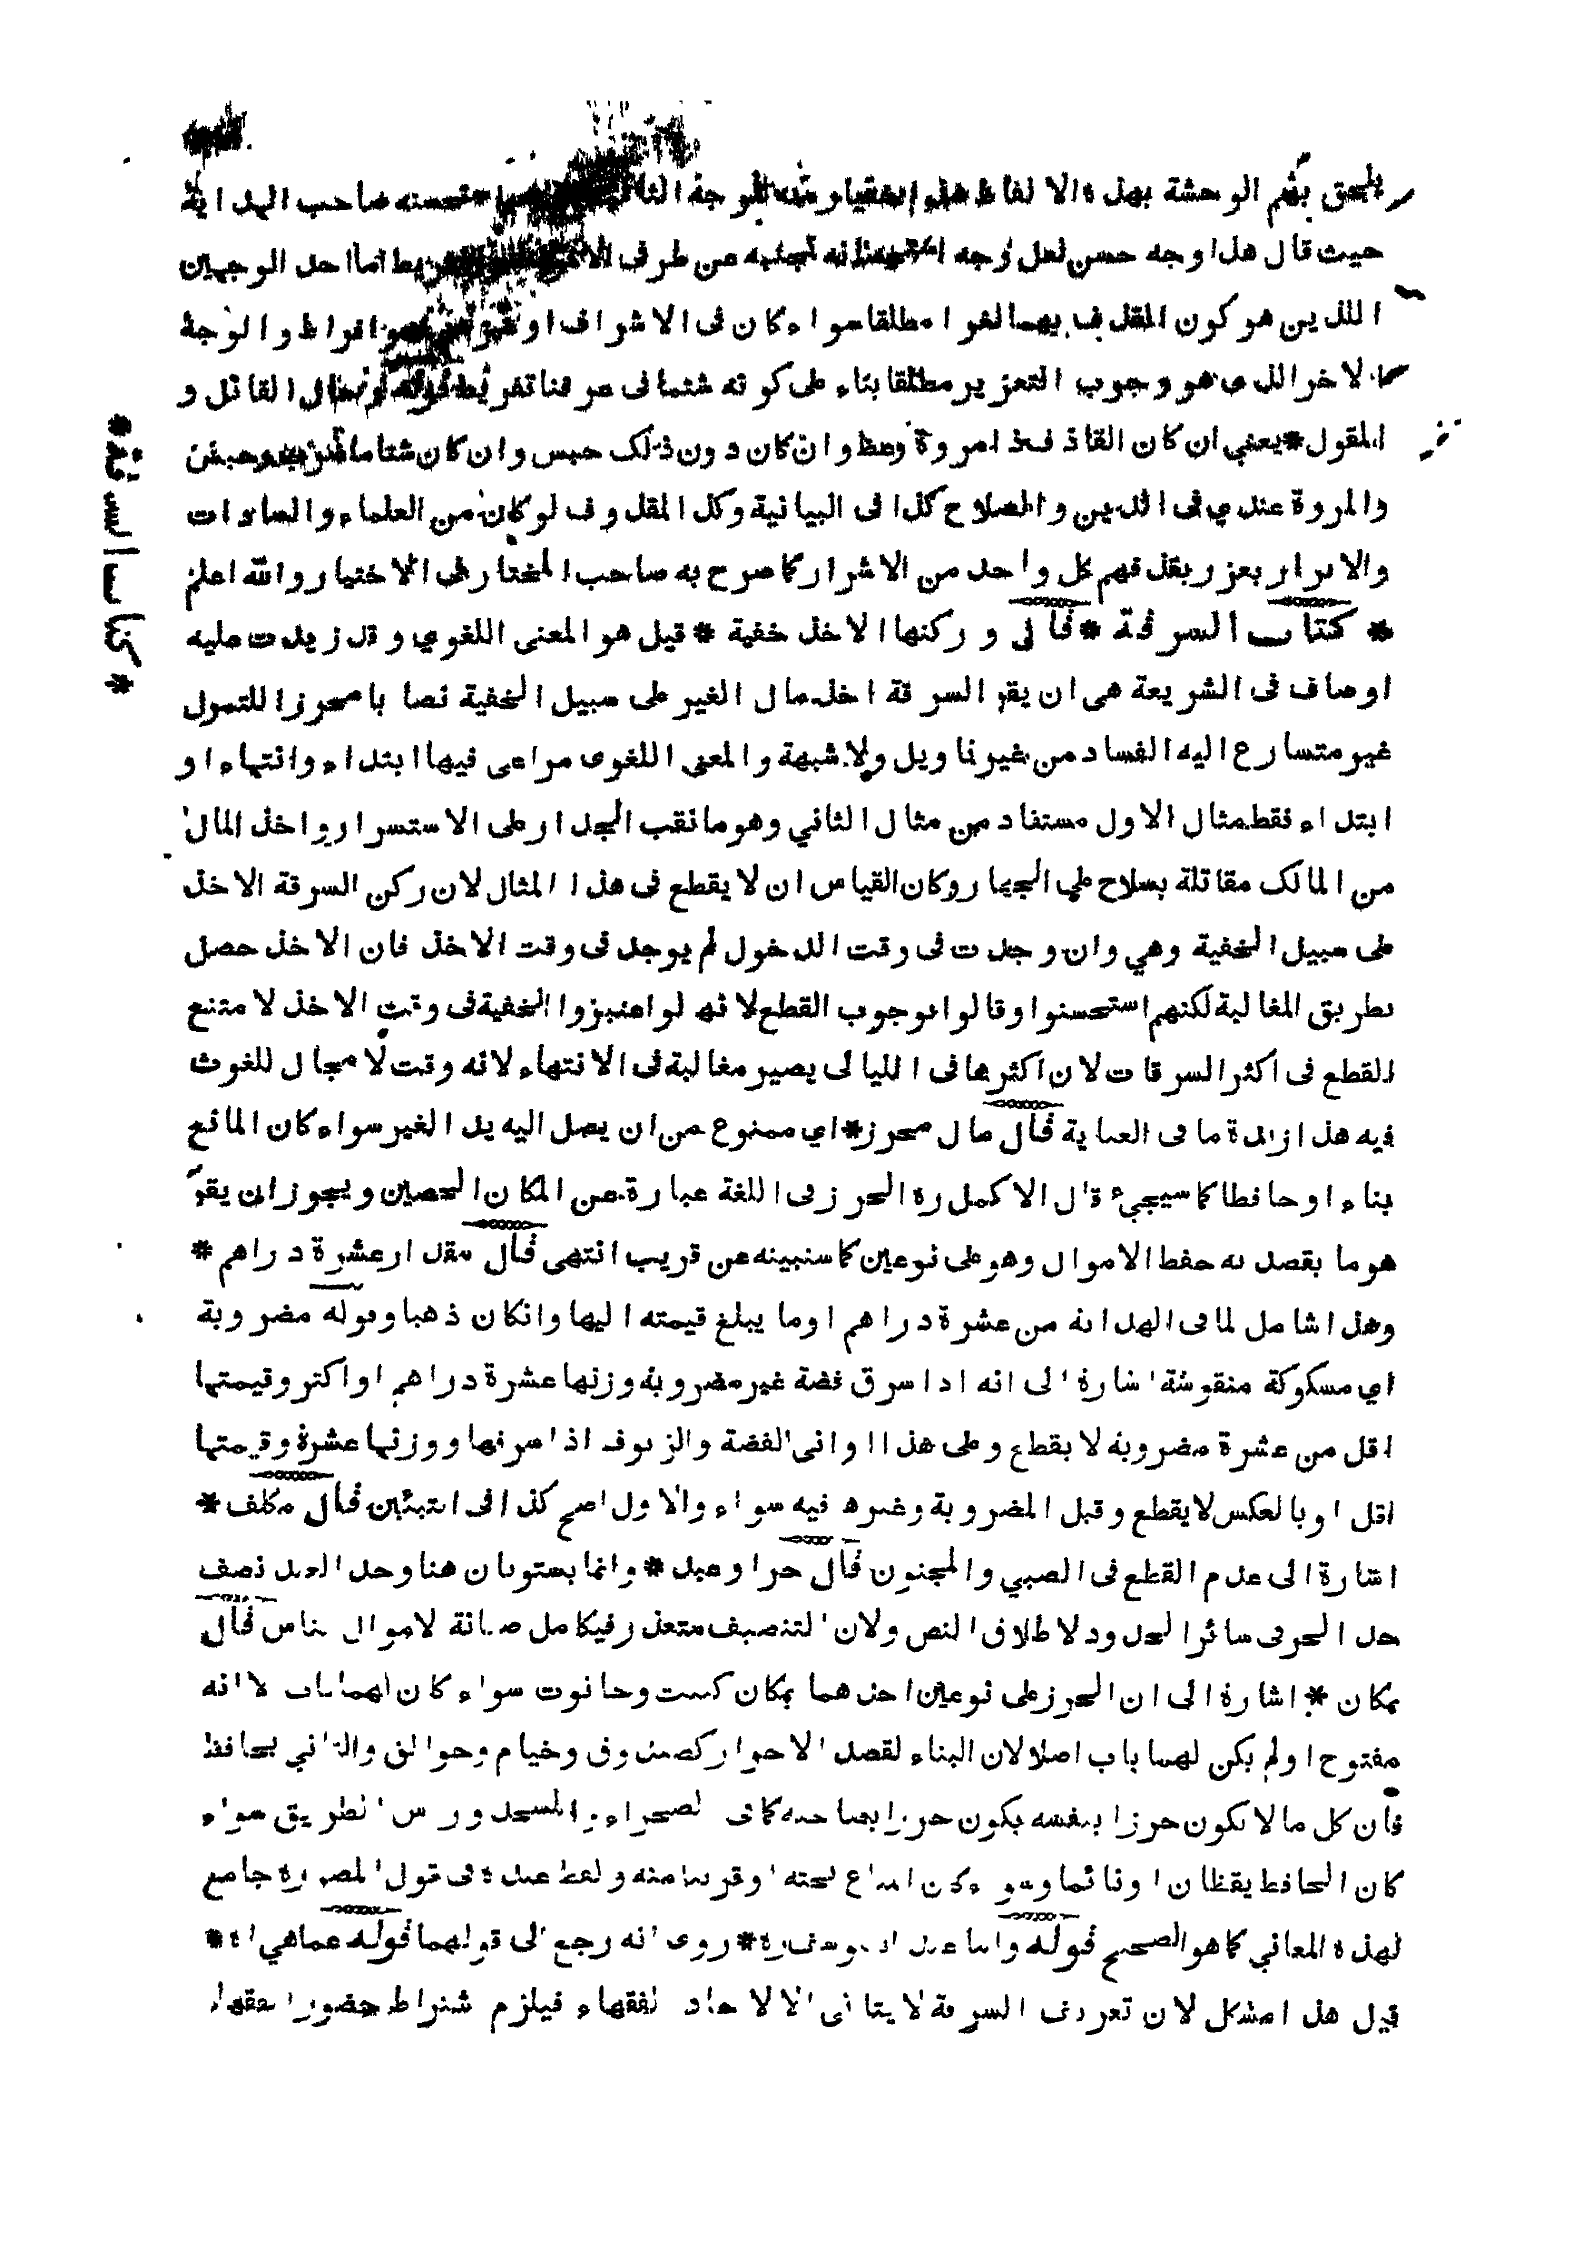 يلحق بهم الوحشة بهذه الالفاظ صاحب الهداية
حيث قال هذا وجه حسن لعل وجه عن طرفى احد الوجهين
اللذين هو كون المقذف بهما لغوا مطلقا سواء كان فى الاشراف او افراط والوجه
الاخر الذى هو وجوب التعزير مطلقا بناء على كونه شتما فى عرفنا تفريط قوله القائل و
المقول * يعني ان كان القاذف ذا مروة وعظ وان كان دون ذلك حبس وان كان شتاما ضرب وحبس
والمروة عندي فى الدين والصلاح كذا فى البيانية وكذا المقذوف لو كان من العلماء والسادات
والابرار يعزر بقذفهم كل واحد من الاشرار كما صرح به صاحب المختار فى الاختيار والله اعلم
* كتاب السرقة * قال و ركنها الاخذ خفية * قيل هو المعنى اللغوي وقد زيدت عليه
اوصاف فى الشريعة هى ان يقم السرقة اخذ مال الغير على سبيل الخفية نصابا محرزا للتمول
غير متسارع اليه الفساد من غير تاويل ولا شبهة والمعنى اللغوى مراعى فيها ابتداء وانتهاء او
ابتداء فقط مثال الاول مستفاد من مثال الثاني وهو ما نقب الجدار على الاستسرار واخذ المال
من المالك مقاتلة بسلاح على الجهار وكان القياس ان لا يقطع فى هذا المثال لان ركن السرقة الاخذ
على سبيل الخفية وهي وان وجدت فى وقت الدخول لم يوجد فى وقت الاخذ فان الاخذ حصل
بطريق المغالبة لكنهم استحسنوا وقالوا بوجوب القطع لانه لو اعتبروا الخفية فى وقت الاخذ لامتنع
القطع فى اكثر السرقات لان اكثرها فى الليالى يصير مغالبة فى الانتهاء لانه وقت لا مجال للغوث
فيه هذا زبدة ما فى العناية قال مال محرز * اي ممنوع من ان يصل اليه يد الغير سواء كان المانع
بناء او حافظا كما سيجيء قال الاكمل ره الحرز فى اللغة عبارة عن المكان الحصين ويجوز ان يقم
هو ما يقصد به حفظ الاموال وهو على نوعين كما سنبينه عن قريب انتهى قال مقدار عشرة دراهم *
وهذا شامل لما فى الهداية من عشرة دراهم او ما يبلغ قيمته اليها وانكان ذهبا وقوله مضروبة
اي مسكوكة منقوشة اشارة الى انه اذا سرق فضة غير مضروبة وزنها عشرة دراهم او اكثر وقيمتها
اقل من عشرة مضروبة لا يقطع وعلى هذا الاوانى الفضة والزيوف اذا سرقها ووزنها عشرة وقيمتها
اقل او بالعكس لا يقطع وقيل المضروبة وغيره فيه سواء والاول اصح كذا فى التبيين قال مكلف *
اشارة الى عدم القطع فى الصبي والمجنون قال حر او عبد * وانما يستويان هنا وحد العبد نصف
حد الحر فى سائر الحدود لاطلاق النص ولان التنصيف متعذر فيكامل صيانة لاموال الناس قال
بمكان * اشارة الى ان الحرز على نوعين احدهما بمكان كبيت وحانوت سواء كان لهما باب الا انه
مفتوح اولم يكن لهما باب اصلا لان البناء لقصد الاحراز كصندوق وخيام وحوالق والثاني بحافظ
فان كل ما لا يكون حرزا بنفسه يكون حرزا بصاحبه كما فى الصحراء والمسجد وراس الطريق سواء
كان الحافظ يقظان او نائما وسواء كان المتاع تحته او قريبا منه ولفظ عنده فى قول المص ره جامع
لهذه المعاني كما هو الصحيح قوله واما عند ابي يوسف ره * روى انه رجع الى قولهما قوله عما هي اه *
قيل هذا مشكل لان تعريف السرقة لا يتاتى الا لاحاد الفقهاء فيلزم اشتراط حضور الفقهاء
* كتاب السرقة *